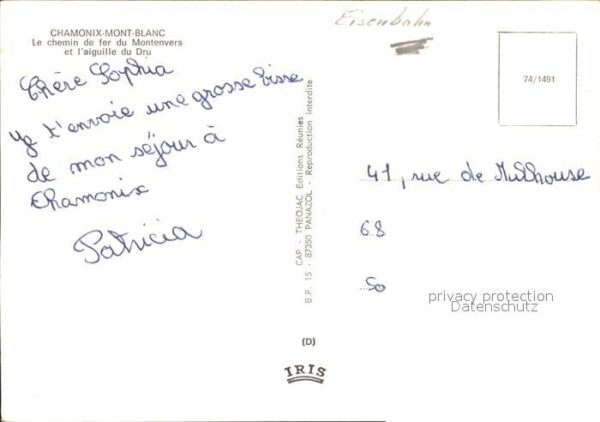 CHAMONIX-MONT-BLANC
Le chemin de fer du Montenvers
et l'aiguille du Dru
Chère Sophia
t'envoie une grosse bisse
de mon séjour à
Chamonix
Patricia
CAP - THEOJAC Editions Réunies
B.P. 15 - 87350 PANAZOL - Reproduction interdite
(D)
IRIS
Eisenbahn
74/1491
41, rue de Mulhouse
68
So
privacy protection
Datenschutz